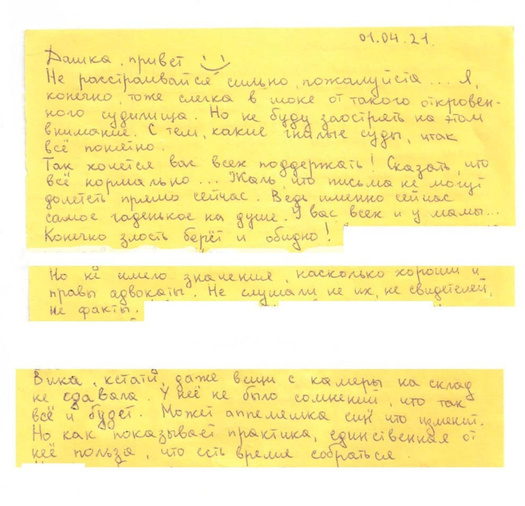 01.04.21.
Дашка, привет
Не расстраивайся сильно, пожалуйста... Я,
конечно, тоже слегка в шоке от такого откровен-
ного судилища. Но не буду заострять на этом
внимание. С тем, какие гнилые суды, итак
всё понятно.
Так хочется вас всех поддержать! Сказать, что
всё нормально... Жаль, что письма не могут
долететь прямо сейчас. Ведь именно сейчас
самое гаденькое на душе. У вас всех и у мамы...
Конечно злость берёт и обидно!
Но не имело значения, насколько хороши и
правы адвокаты. Не слушали не их, не свидетелей,
не факты.
Вика, кстати, даже вещи с камеры на склад
не сдавала. У неё не было сомнений, что так
всё и будет. Может аппеляшка что изменит.
Но как показывает практика, единственная от
неё польза, что есть время собраться.